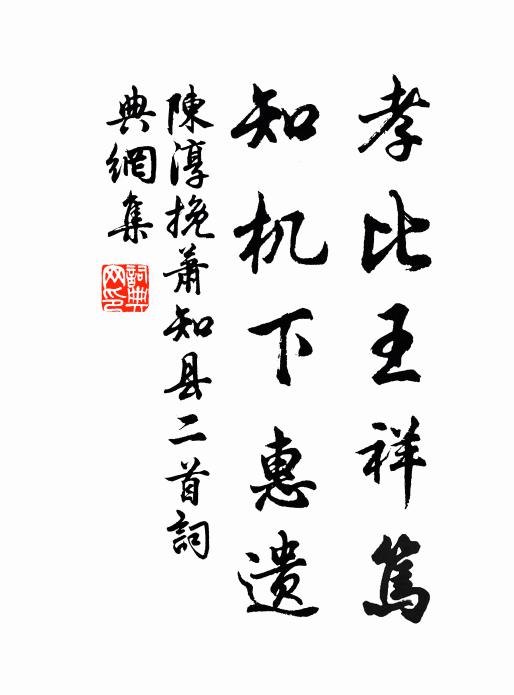 孝比王祥篤
知机下惠遗
陳淳挽蕭知县二首詞
典網集
詞典网印